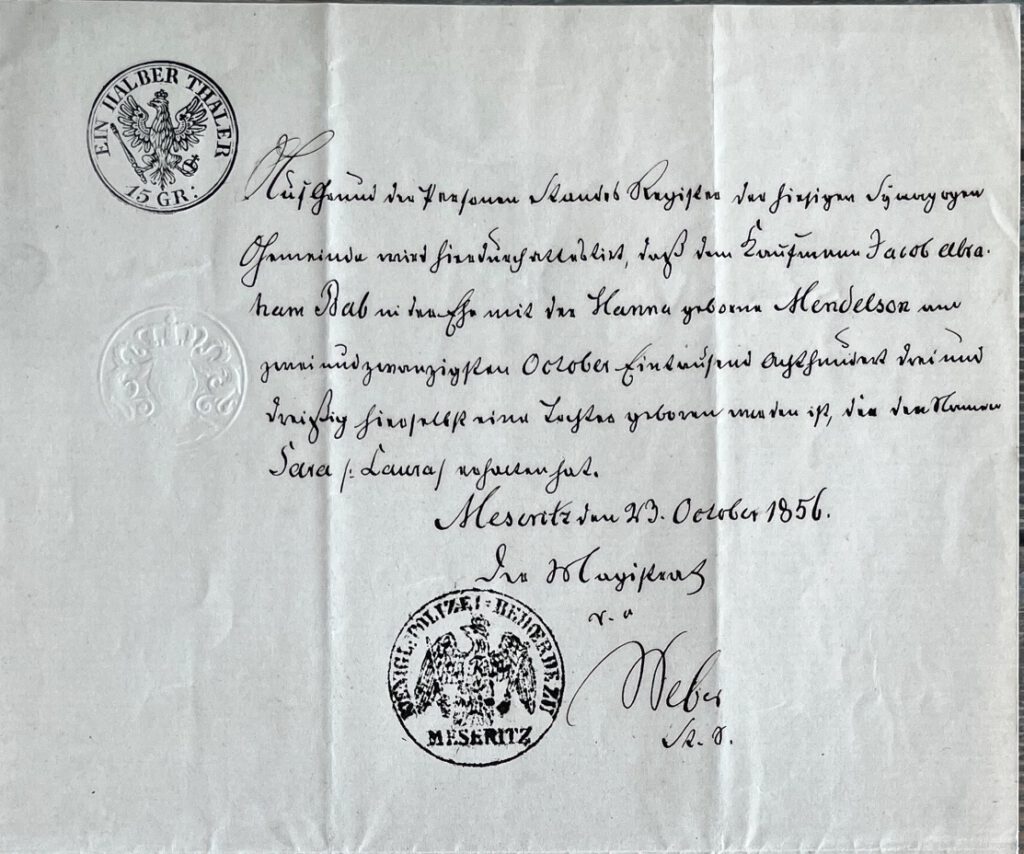 EIN HALBER THALER
15 GR:
Auf Grund der Personen Standes Register der hiesigen Synagogen
Gemeinde wird hierdurch attestirt, daß dem Kaufmann Jacob Abra-
ham Bab in der Ehe mit der Hanna geborne Mendelson am
zwei und zwanzigsten October Eintausend Achthundert drei und
dreißig hierselbst eine Tochter geboren worden ist, die den Namen
Sara /: Laura/ erhalten hat.
Meseritz den 23. October 1856.
Der Magistrat
Weber
KOENIGL: POLIZEI-BEHOERDE ZU
MESERITZ